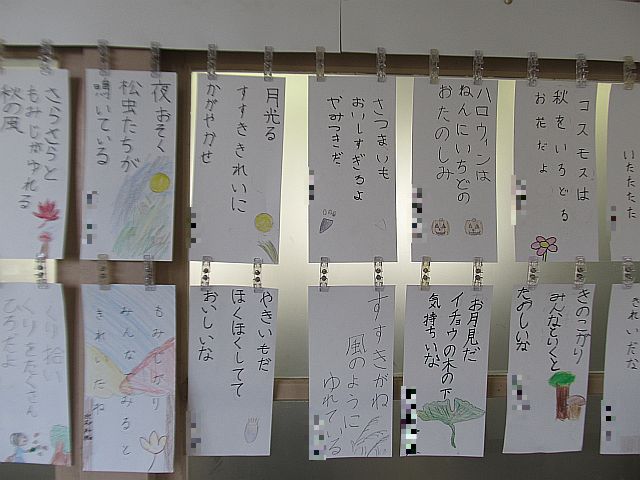 いたたたた
コスモスは
秋をいろどる
お花だよ
ハロウィンは
ねんにいちどの
おたのしみ
さつまいも
おいしすぎるよ
やみつきだ
月光る
すすききれいに
かがやかせ
夜おそく
松虫たちが
鳴いている
さらさらと
もみじがゆれる
秋の風
きれいだな
きのこかり
みんなといくと
たのしいな
お月見だ
イチョウの木の下
気持ちいな
すすきがね
風のように
ゆれている
やきいもだ
ほくほくしてて
おいしいな
もみじがり
みんな みると
きれ たね
くり拾い
くりをたくさん
ひろたよ